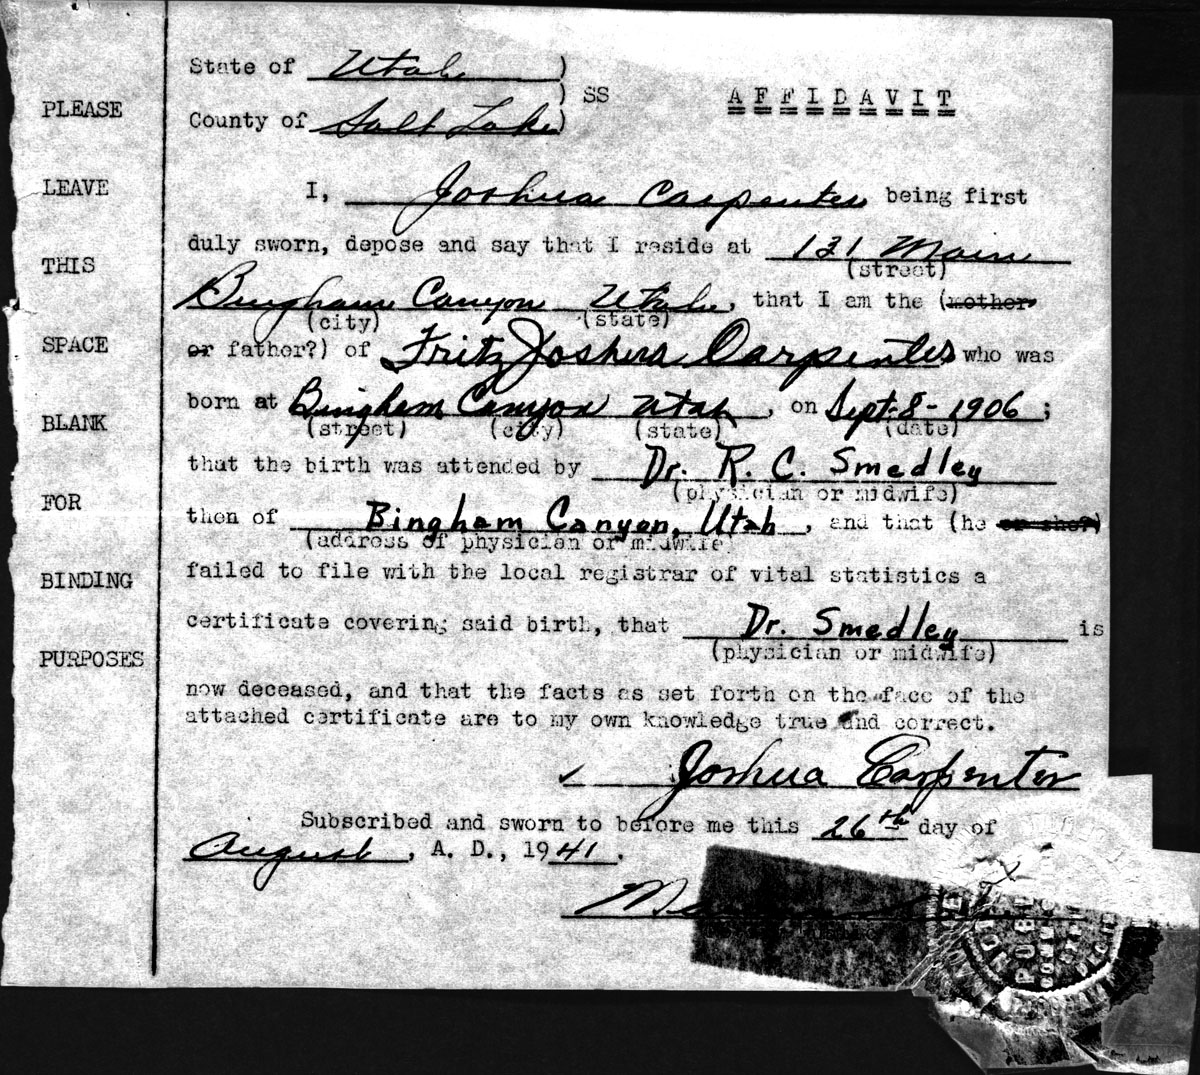 State of Utah )
) SS
AFFIDAVIT
County of Salt Lake )
PLEASE
LEAVE
THIS
SPACE
BLANK
FOR
BINDING
PURPOSES
I, Joshua Carpenter being first
duly sworn, depose and say that I reside at 131 Main
(street)
Bingham Canyon Utah, that I am the (mother
(city) (state)
or father?) of Fritz Joshua Carpenter who was
born at Bingham Canyon Utah, on Sept-8-1906;
(street) (city) (state) (date)
that the birth was attended by Dr. R. C. Smedley
(physician or midwife)
then of Bingham Canyon, Utah, and that (he or she?)
(address of physician or midwife
failed to file with the local registrar of vital statistics a
certificate covering said birth, that Dr. Smedley is
(physician or midwife)
now deceased, and that the facts as set forth on the face of the
attached certificate are to my own knowledge true and correct.
✓ Joshua Carpenter
Subscribed and sworn to before me this 26th day of
August, A. D., 1941.